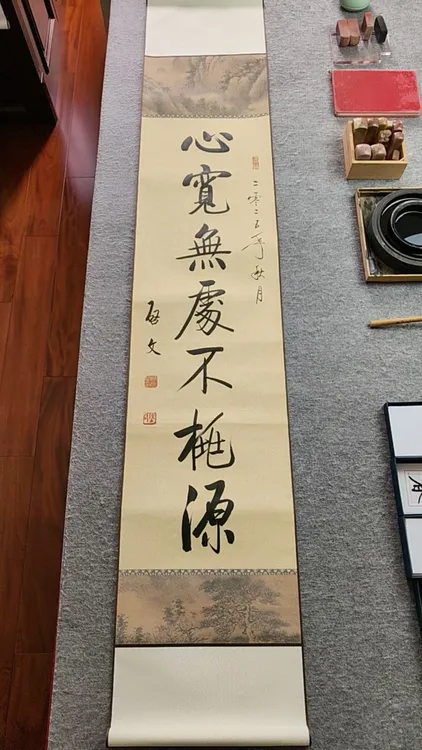 二零二五年秋月
心寬無處不桃源
啓文